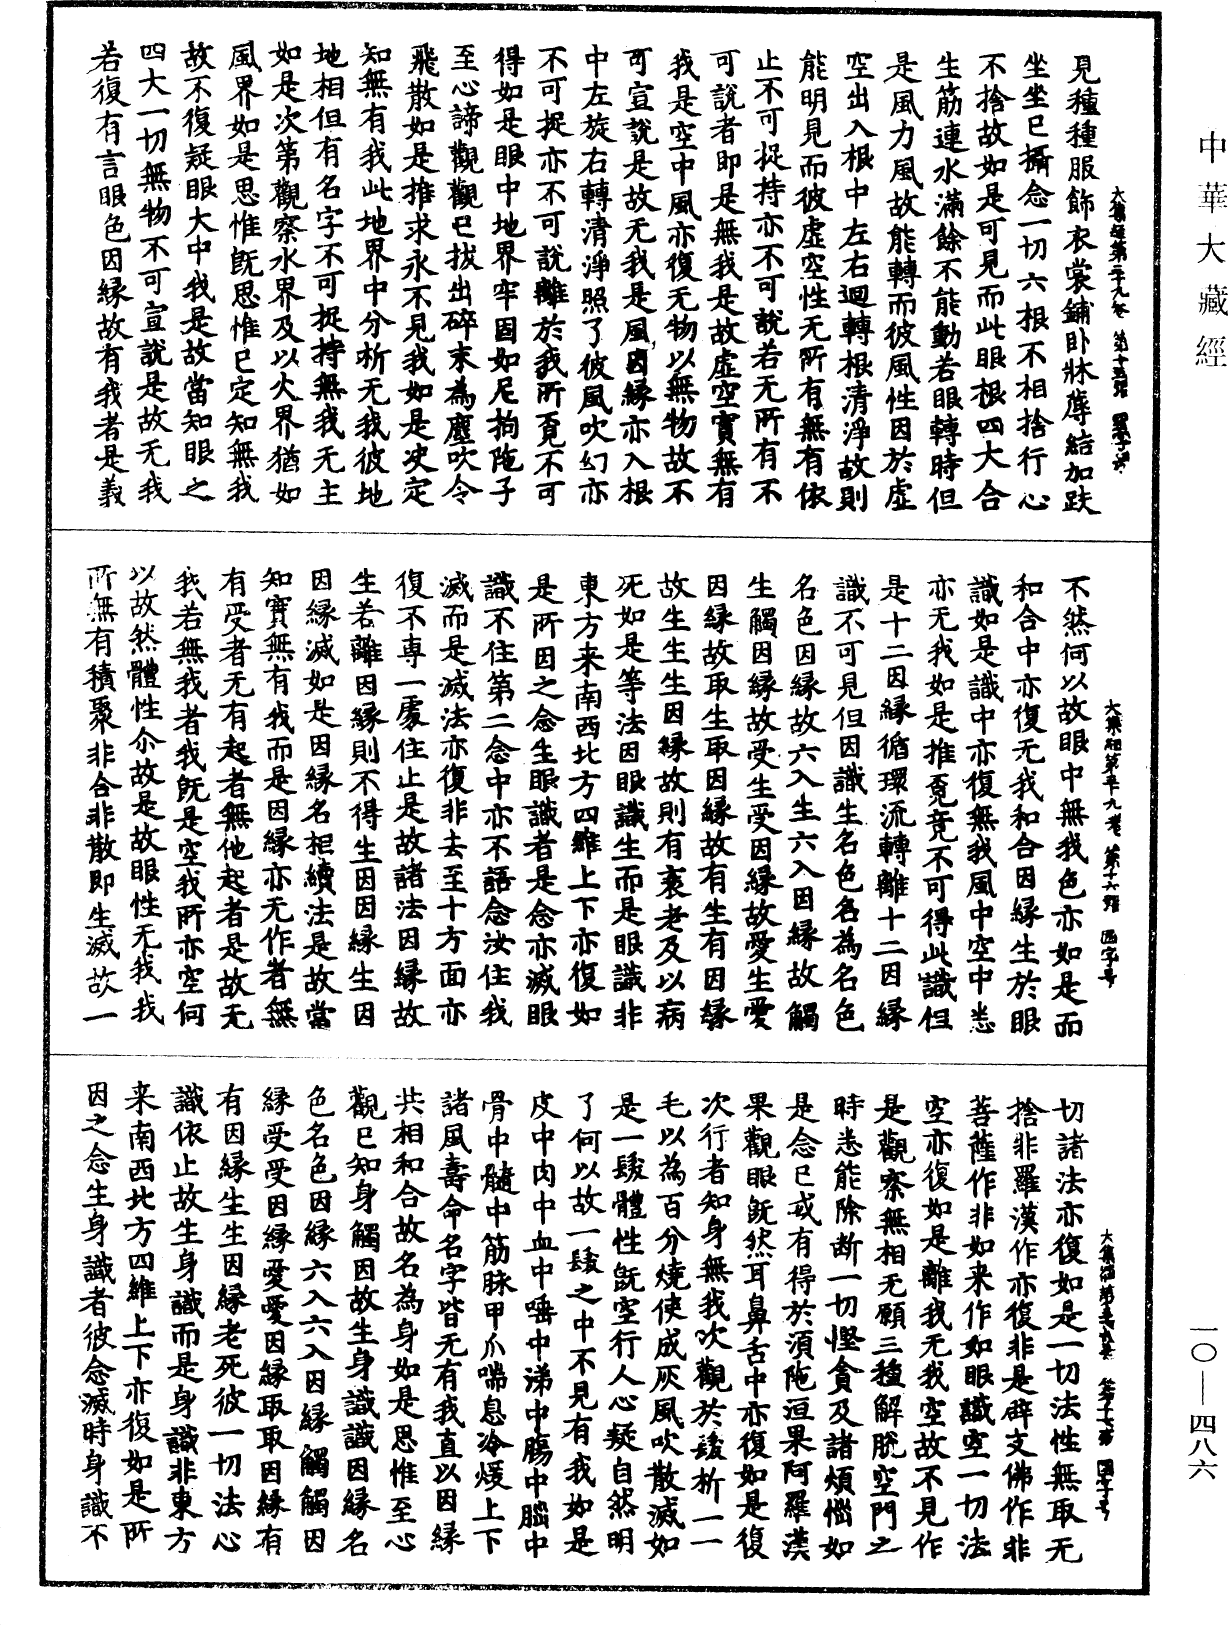 中華大藏經
見種種服飾衣裳鋪卧牀蓐結加趺
坐坐已攝念一切六根不相捨行心
不捨故如是可見而此眼根四大合
生筋連水滿餘不能動若眼轉時但
是風力風故能轉而彼風性因於虛
空出入根中左右迴轉根清淨故則
能明見而彼虛空性无所有無有依
止不可捉持亦不可說若无所有不
可說者即是無我是故虛空實無有
我是空中風亦復无物以無物故不
可宣說是故无我是風因緣亦入根
中左旋右轉清淨照了彼風吹幻亦
不可捉亦不可說離於我所覓不可
得如是眼中地界牢固如尼拘陁子
至心諦觀觀已拔出碎末為塵吹令
飛散如是推求永不見我如是決定
知無有我此地界中分析无我彼地
地相但有名字不可捉持無我无主
如是次第觀察水界及以火界猶如
風界如是思惟旣思惟已定知無我
故不復疑眼大中我是故當知眼之
四大一切無物不可宣說是故无我
若復有言眼色因緣故有我者是義
大集經第五十九卷 第十五張
不然何以故眼中無我色亦如是而
和合中亦復无我和合因緣生於眼
識如是識中亦復無我風中空中悉
亦无我如是推覓竟不可得此識但
是十二因緣循環流轉離十二因緣
識不可見但因識生名色名為名色
名色因緣故六入生六入因緣故觸
生觸因緣故受生受因緣故愛生愛
因緣故取生取因緣故有生有因緣
故生生生因緣故則有衰老及以病
死如是等法因眼識生而是眼識非
東方来南西北方四維上下亦復如
是所因之念生眼識者是念亦滅眼
識不住第二念中亦不語念汝住我
滅而是滅法亦復非去至十方面亦
復不專一處住止是故諸法因緣故
生若離因緣則不得生因因緣生因
因緣滅如是因緣名相續法是故當
知實無有我而是因緣亦无作者無
有受者无有起者無他起者是故无
我若無我者我旣是空我所亦空何
以故然體性尒故是故眼性无我我
所無有積聚非合非散即生滅故一
大集經第五十九卷 第十六張
切諸法亦復如是一切法性無取无
捨非羅漢作亦復非是辟支佛作非
菩薩作非如来作如眼識空一切法
空亦復如是離我无我空故不見作
是觀察無相无願三種解脫空門之
時悉能除斷一切慳貪及諸煩惱如
是念已或有得於須陁洹果阿羅漢
果觀眼旣然耳鼻舌中亦復如是復
次行者知身無我次觀於髮析一一
毛以為百分燒使成灰風吹散滅如
是一髮體性旣空行人心疑自然明
了何以故一髮之中不見有我如是
皮中肉中血中唾中涕中腸中腦中
骨中髓中筋脉甲爪喘息冷煖上下
諸風壽命名字皆无有我直以因緣
共相和合故名為身如是思惟至心
觀已知身觸因故生身識識因緣名
色名色因緣六入六入因緣觸觸因
緣受受因緣愛愛因緣取取因緣有
有因緣生生因緣老死彼一切法心
識依止故生身識而是身識非東方
来南西北方四維上下亦復如是所
因之念生身識者彼念滅時身識不
一〇—四八六